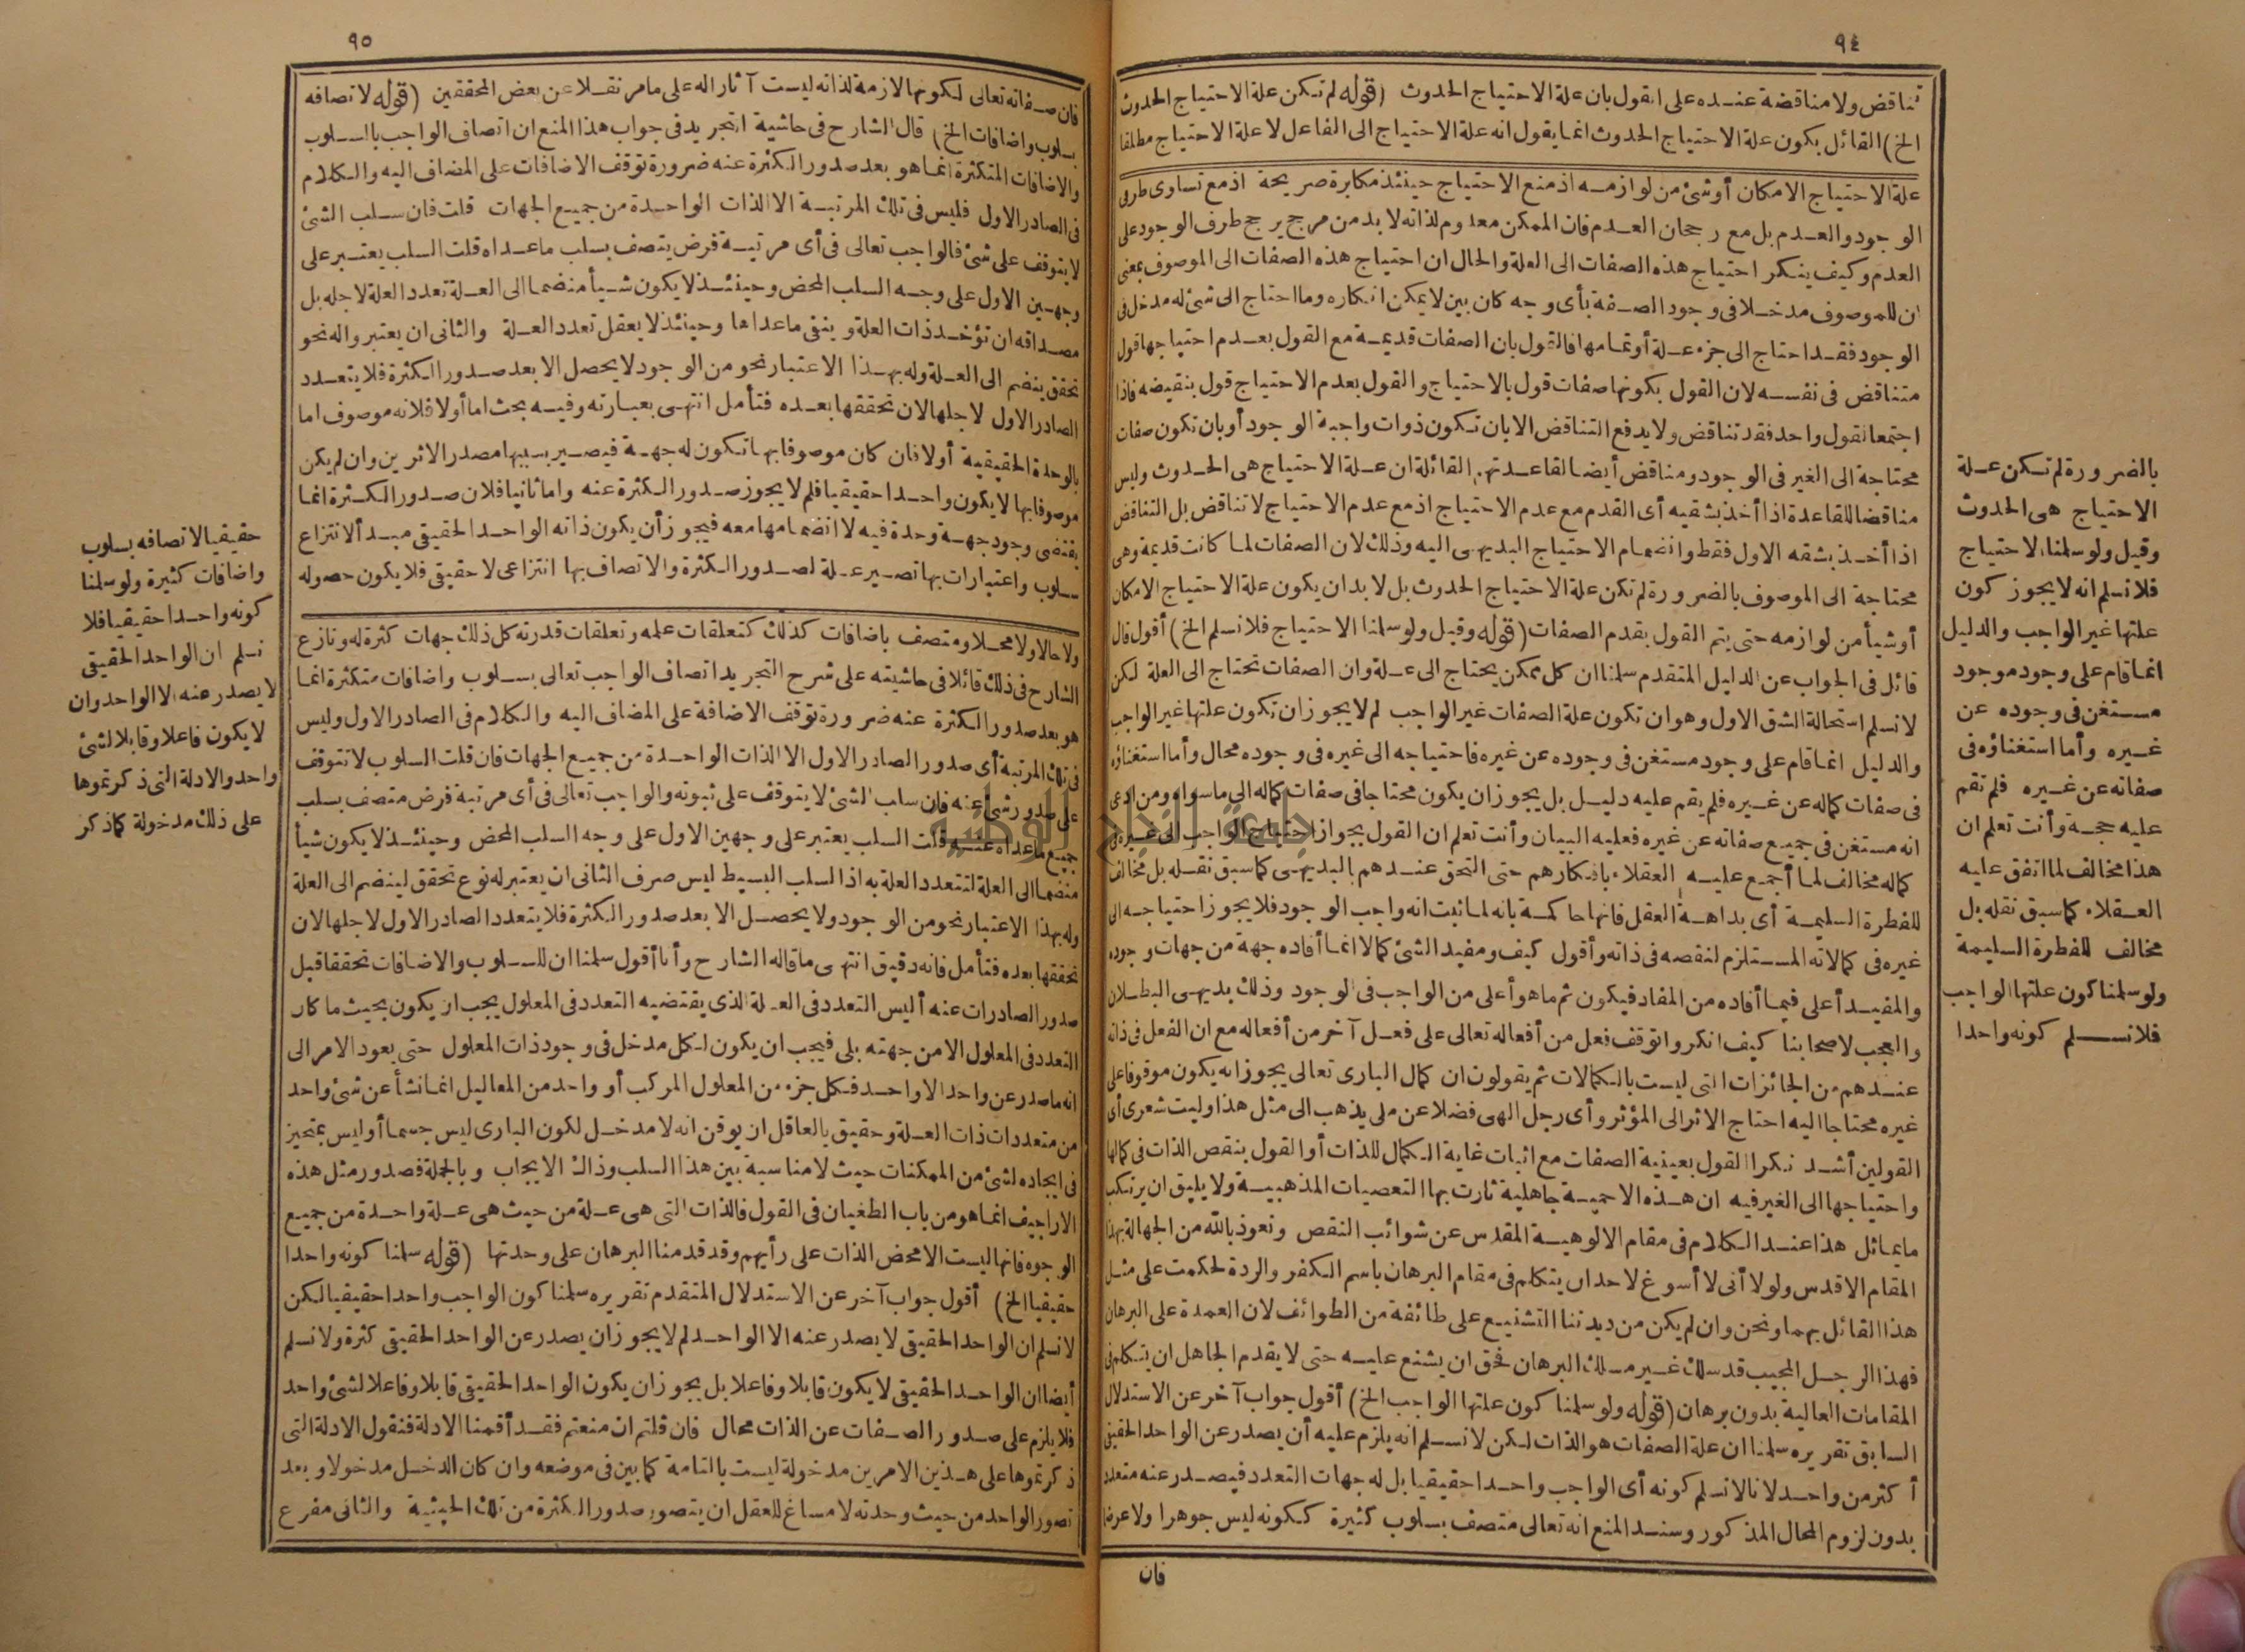 ٩٤
تناقض ولا مناقضة عنده على القول بان علة الاحتياج الحدوث (قوله لم تكن علة الاحتياج الحدوث
الخ) القائل بكون علة الاحتياج الحدوث انما يقول انه علة الاحتياج الى الفاعل لا علة الاحتياج مطلقا
علة الاحتياج الامكان أوشئ من لوازمه اذ منع الاحتياج حينئذ مكابرة صريحة اذ مع تساوى طرفى
الوجود والعدم بل مع رجحان العدم فان الممكن معدوم لذاته لا بد من مرجح يرجح طرف الوجود على
العدم وكيف ينكر احتياج هذه الصفات الى العلة والحال ان احتياج هذه الصفات الى الموصوف بمعنى
ان للموصوف مدخلا فى وجود الصفة بأى وجه كان بين لا يمكن انكاره وما احتاج الى شئ له مدخل فى
الوجود فقد احتاج الى جزء علة أوتمامها فالقول بان الصفات قديمة مع القول بعدم احتياجها قول
متناقض فى نفسه لان القول بكونها صفات قول بالاحتياج والقول بعدم الاحتياج قول بنقيضه فاذا
اجتمعا لقول واحد فقد تناقض ولا يدفع التناقض الا بان تكون ذوات واجبة الوجود أوبان تكون صفات
محتاجة الى الغير فى الوجود ومناقض أيضا لقاعدتهم القائلة ان علة الاحتياج هى الحدوث وليس
مناقضا للقاعدة اذا أخذ بشقيه أى القدم مع عدم الاحتياج اذ مع عدم الاحتياج لا تناقض بل التناقض
اذا أخذ بشقه الاول فقط وانضمام الاحتياج البديهى اليه وذلك لان الصفات لما كانت قديمة وهى
محتاجة الى الموصوف بالضرورة لم تكن علة الاحتياج الحدوث بل لا بد ان يكون علة الاحتياج الامكان
أوشيأ من لوازمه حتى يتم القول بقدم الصفات (قوله وقيل ولو سلمنا الاحتياج فلا نسلم الخ) أقول قال
قائل فى الجواب عن الدليل المتقدم سلمنا ان كل ممكن يحتاج الى علة وان الصفات تحتاج الى العلة لكن
لا نسلم استحالة الشق الاول وهو ان تكون علة الصفات غير الواجب لم لا يجوز ان تكون علتها غير الواجب
والدليل انما قام على وجود مستغن فى وجوده عن غيره فاحتياجه الى غيره فى وجوده محال وأما استغناؤه
فى صفات كماله عن غيره فلم يقم عليه دليل بل يجوز ان يكون محتاجا فى صفات كماله الى ما سواه ومن ادعى
انه مستغن فى جميع صفاته عن غيره فعليه البيان وأنت تعلم ان القول بجواز احتياج الواجب الى غيره فى
كماله مخالف لما أجمع عليه العقلاء بافكارهم حتى التحق عندهم بالبديهى كما سبق نقله بل مخالف
للفطرة السليمة أى بداهة العقل فانها حاكمة بانه لما ثبت انه واجب الوجود فلا يجوز احتياجه الى
غيره فى كمالاته المستلزم لنقصه فى ذاته وأقول كيف ومفيد الشئ كمالا انما أفاده جهة من جهات وجوده
والمفيد أعلى فيما أفاده من المفاد فيكون ثم ما هو أعلى من الواجب فى الوجود وذلك بديهى البطلان
والعجب لاصحابنا كيف انكروا توقف فعل من أفعاله تعالى على فعل آخر من أفعاله مع ان الفعل فى ذاته
عندهم من الجائزات التى ليست بالكمالات ثم يقولون ان كمال البارى تعالى يجوز انه يكون موقوفا على
غيره محتاجا اليه احتياج الاثر الى المؤثر وأى رجل الهى فضلا عن ملى يذهب الى مثل هذا وليت شعرى أى
القولين أشد نكرا القول بعينية الصفات مع اثبات غاية الكمال للذات أو القول بنقص الذات فى كمالها
واحتياجها الى الغير فيه ان هذه الا حمية جاهلية ثارت بها التعصبات المذهبية ولا يليق ان يرتكب
ما يماثل هذا عند الكلام فى مقام الالوهية المقدس عن شوائب النقص ونعوذ بالله من الجهالة بهذا
المقام الاقدس ولولا أنى لا أسوغ لاحد ان يتكلم فى مقام البرهان باسم الكفر والردة لحكمت على مثل
هذا القائل بهما ونحن وان لم يكن من ديدننا التشنيع على طائفة من الطوائف لان العمدة على البرهان
فهذا الرجل المجيب قد سلك غير مسلك البرهان فحق ان يشنع عليه حتى لا يقدم الجاهل ان يتكلم فى
المقامات العالية بدون برهان (قوله ولو سلمنا كون علتها الواجب الخ) أقول جواب آخر عن الاستدلال
السابق تقريره سلمنا ان علة الصفات هو الذات لكن لا نسلم انه يلزم عليه أن يصدر عن الواحد الحقيقى
أكثر من واحد لانا لا نسلم كونه أى الواجب واحدا حقيقيا بل له جهات التعدد فيصدر عنه متعدد
بدون لزوم المحال المذكور وسند المنع انه تعالى متصف بسلوب كثيرة ككونه ليس جوهرا ولا عرضا
فان
بالضرورة لم تكن علة
الاحتياج هى الحدوث
وقيل ولو سلمنا الاحتياج
فلا نسلم انه لا يجوز كون
علتها غير الواجب والدليل
انما قام على وجود موجود
مستغن فى وجوده عن
غيره وأما استغناؤه فى
صفاته عن غيره فلم تقم
عليه حجة وأنت تعلم ان
هذا مخالف لما اتفق عليه
العقلاء كما سبق نقله بل
مخالف للفطرة السليمة
ولو سلمنا كون علتها الواجب
فلا نسلم كونه واحدا
٩٥
فان صفاته تعالى لكونها لازمة لذاته ليست آثارا له على ما مر نقلا عن بعض المحققين (قوله لاتصافه
بسلوب واضافات الخ) قال الشارح فى حاشية التجريد فى جواب هذا المنع ان اتصاف الواجب بالسلوب
والاضافات المتكثرة انما هو بعد صدور الكثرة عنه ضرورة توقف الاضافات على المضاف اليه والكلام
فى الصادر الاول فليس فى تلك المرتبة الا الذات الواحدة من جميع الجهات قلت فان سلب الشئ
لا يتوقف على شئ فالواجب تعالى فى أى مرتبة فرض يتصف بسلب ما عداه قلت السلب يعتبر على
وجهين الاول على وجه السلب المحض وحينئذ لا يكون شيأ منضما الى العلة تعدد العلة لاجله بل
مصداقه ان تؤخذ ذات العلة وينفى ما عداها وحينئذ لا يعقل تعدد العلة والثانى ان يعتبر واله نحو
تحقق ينضم الى العلة وله بهذا الاعتبار نحو من الوجود لا يحصل الا بعد صدور الكثرة فلا يتعدد
الصادر الاول لاجلها لان تحققها بعده فتأمل انتهى بعبارته وفيه بحث اما أولا فلانه موصوف اما
بالوحدة الحقيقية أولا فان كان موصوفا بها تكون له جهة فيصير بسببها مصدر الاثرين وان لم يكن
موصوفا بها لا يكون واحدا حقيقيا فلم لا يجوز صدور الكثرة عنه واما ثانيا فلان صدور الكثرة انما
يقتضى وجود جهة وحدة فيه لا انضمامها معه فيجوز أن يكون ذاته الواحد الحقيقى مبدأ لانتزاع
سلوب واعتبارات بها تصير علة لصدور الكثرة والاتصاف بها انتزاعى لا حقيقى فلا يكون حصوله
ولا حالا ولا محلا ومتصف باضافات كذلك كتعلقات علمه وتعلقات قدرته كل ذلك جهات كثرة له ونازع
الشارح فى ذلك قائلا فى حاشيته على شرح التجريد اتصاف الواجب تعالى بسلوب واضافات متكثرة انما
هو بعد صدور الكثرة عنه ضرورة توقف الاضافة على المضاف اليه والكلام فى الصادر الاول وليس
فى تلك المرتبة أى صدور الصادر الاول الا الذات الواحدة من جميع الجهات فان قلت السلوب لا تتوقف
على صدور شئ عنه فان سلب الشئ لا يتوقف على ثبوته والواجب تعالى فى أى مرتبة فرض متصف بسلب
جميع ما عداه عنه قلت السلب يعتبر على وجهين الاول على وجه السلب المحض وحينئذ لا يكون شيأ
منضما الى العلة لتتعدد العلة به اذ السلب البسيط ليس صرف الثانى ان يعتبر له نوع تحقق لينضم الى العلة
وله بهذا الاعتبار نحو من الوجود ولا يحصل الا بعد صدور الكثرة فلا يتعدد الصادر الاول لاجلها لان
تحققها بعده فتأمل فانه دقيق انتهى ما قاله الشارح وأنا أقول سلمنا ان للسلوب والاضافات تحققا قبل
صدور الصادرات عنه أليس التعدد فى العلة الذى يقتضيه التعدد فى المعلول يجب ان يكون بحيث ما كان
التعدد فى المعلول الا من جهته بلى فيجب ان يكون لكل مدخل فى وجود ذات المعلول حتى يعود الامر الى
انه ما صدر عن واحد الا واحد فكل جزء من المعلول المركب أو واحد من المعاليل انما نشأ عن شئ واحد
من متعددات ذات العلة وحقيق بالعاقل ان يوقن انه لا مدخل لكون البارى ليس جسما أوليس بمتحيز
فى ايجاده لشئ من الممكنات حيث لا مناسبة بين هذا السلب وذاك الايجاب وبالجملة فصدور مثل هذه
الاراجيف انما هو من باب الطغيان فى القول فالذات التى هى علة من حيث هى علة واحدة من جميع
الوجوه فانها ليست الا محض الذات على رأيهم وقد قدمنا البرهان على وحدتها (قوله سلمنا كونه واحدا
حقيقيا الخ) أقول جواب آخر عن الاستدلال المتقدم تقريره سلمنا كون الواجب واحدا حقيقيا لكن
لا نسلم ان الواحد الحقيقى لا يصدر عنه الا الواحد لم لا يجوز ان يصدر عن الواحد الحقيقى كثرة ولا نسلم
أيضا ان الواحد الحقيقى لا يكون قابلا وفاعلا بل يجوز ان يكون الواحد الحقيقى قابلا وفاعلا لشئ واحد
فلا يلزم على صدور الصفات عن الذات محال فان قلتم ان منعتم فقد أقمنا الادلة فنقول الادلة التى
ذكرتموها على هذين الامرين مدخولة ليست بالتامة كما بين فى موضعه وان كان الدخل مدخولا وبعد
تصور الواحد من حيث وحدته لا مساغ للعقل ان يتصور صدور الكثرة من تلك الحيثية والثانى مفرع
حقيقيا لاتصافه بسلوب
واضافات كثيرة ولو سلمنا
كونه واحدا حقيقيا فلا
نسلم ان الواحد الحقيقى
لا يصدر عنه الا الواحد وان
لا يكون فاعلا وقابلا لشئ
واحد والادلة التى ذكرتموها
على ذلك مدخولة كما ذكر
جامعة النجاح الوطنية